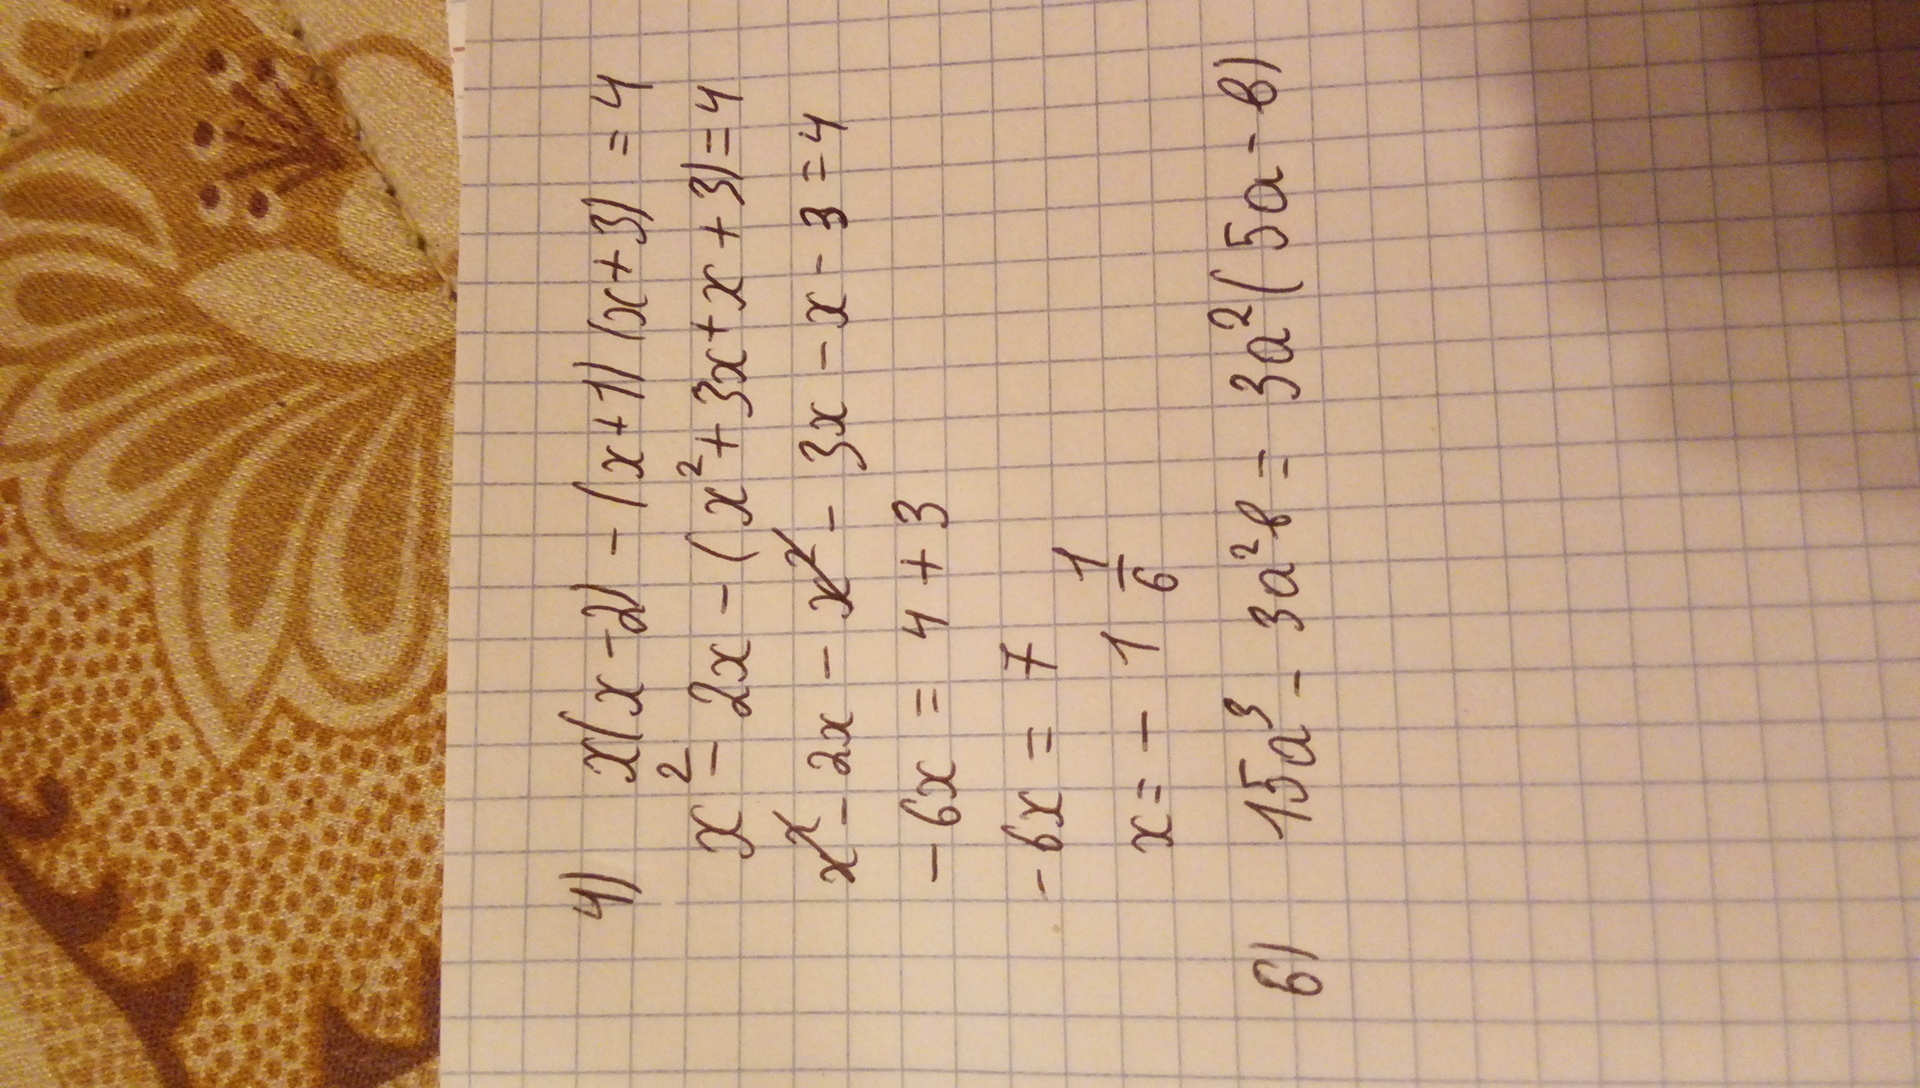 4) x(x-2) - (x+1)(x+3) = 4
x² - 2x - (x² + 3x + x + 3) = 4
x² - 2x - x² - 3x - x - 3 = 4
- 6x = 4 + 3
- 6x = 7
x = - 1 1/6
6) 15a³ - 3a²b = 3a²(5a - b)